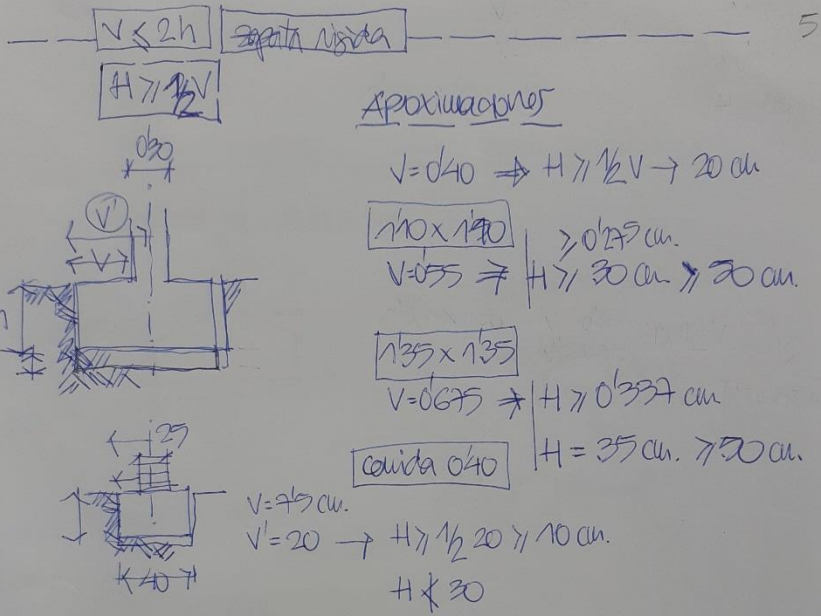 V ⩽ 2h zapata rigida 5
H ⩾ 1/2 V
Aproximaciones
0'30
V=0'40 ⇒ H ⩾ 1/2 V → 20 cm
V'
V
1'10 x 1'10
⩾ 0'275 cm.
V=0'55 ⇒ H ⩾ 30 cm ⩾ 50 cm.
1'35 x 1'35
V=0'675 ⇒ H ⩾ 0'337 cm
H = 35 cm. ⩾ 50 cm.
25
corrida 0'40
V=7'5 cm.
V'=20 → H ⩾ 1/2 20 ⩾ 10 cm.
40
H ≮ 30